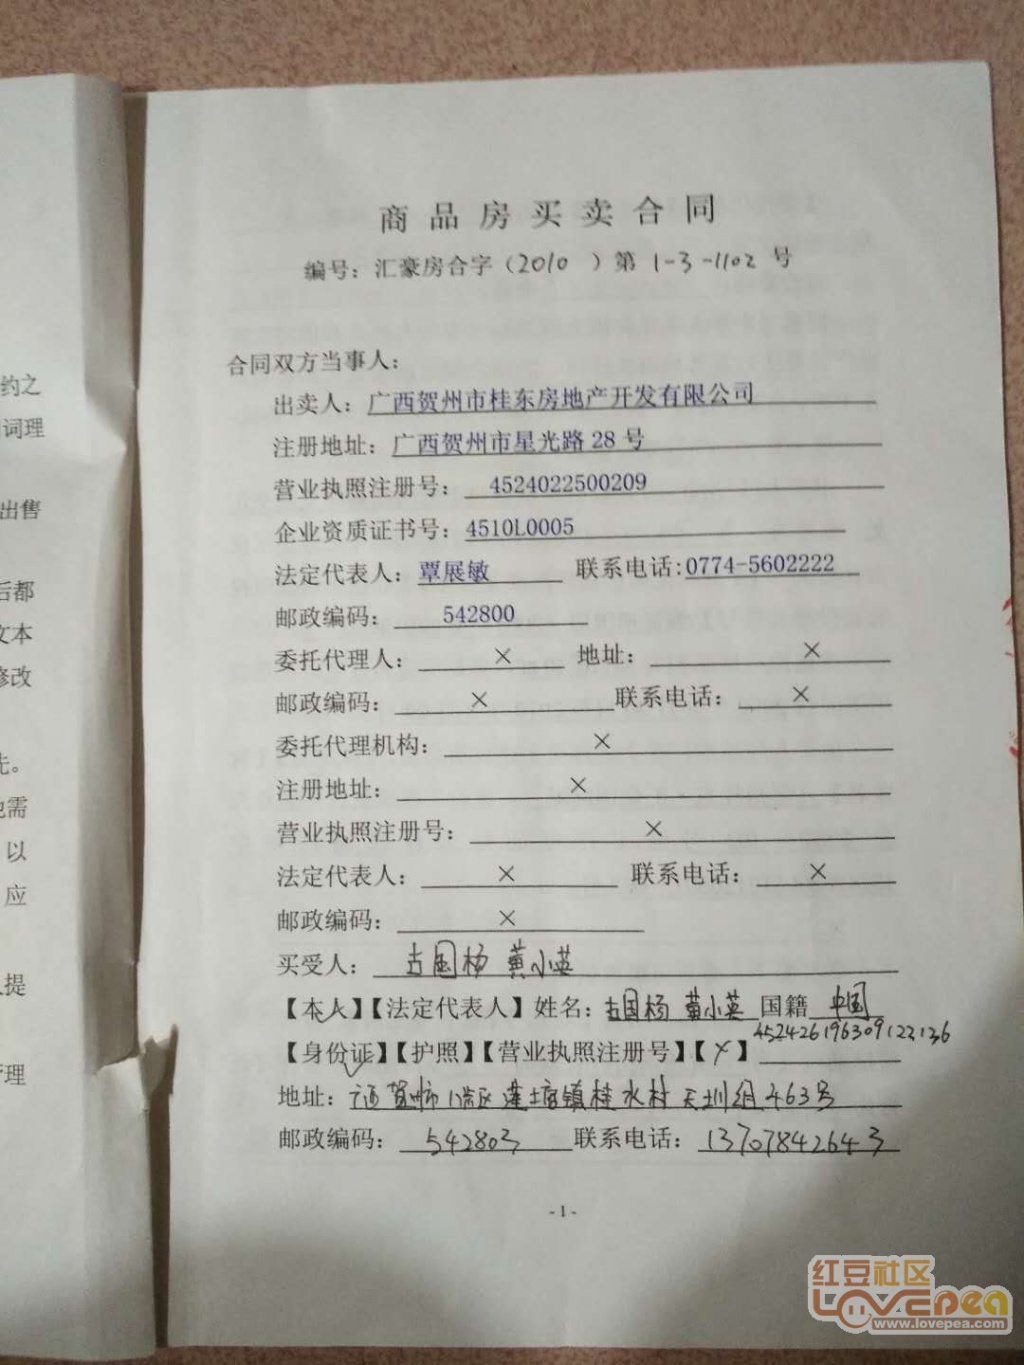 商品房买卖合同
编号：汇豪房合字（2010 ）第 1-3-1102 号
合同双方当事人：
出卖人：广西贺州市桂东房地产开发有限公司
注册地址：广西贺州市星光路 28 号
营业执照注册号：4524022500209
企业资质证书号：4510L0005
法定代表人：覃展敏 联系电话：0774-5602222
邮政编码：542800
委托代理人：× 地址：×
邮政编码：× 联系电话：×
委托代理机构：×
注册地址：×
营业执照注册号：×
法定代表人：× 联系电话：×
邮政编码：×
买受人：古国杨 黄小英
【本人】【法定代表人】姓名：古国杨 黄小英 国籍 中国
【身份证】【护照】【营业执照注册号】【×】
地址：广西贺州市八步区莲塘镇桂水村 463号
邮政编码：542803 联系电话：13707842643
- 1 -
约之
词理
出售
后都
文本
修改
先。
他需
以
应
提
管理
红豆社区
Lovepea
www.lovepea.com